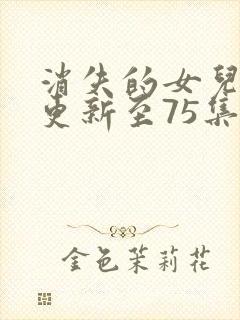 消失的女兒
更新至75集
金色茉莉花